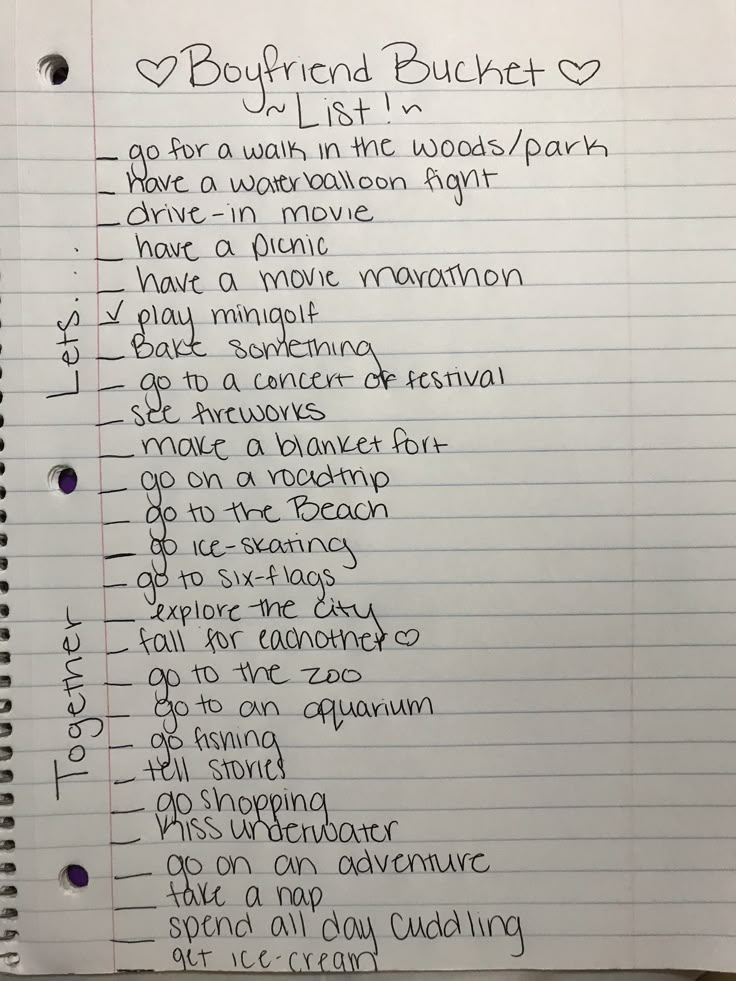 ♡ Boyfriend Bucket ♡
~ List! ~
_ go for a walk in the woods/park
_ have a waterballoon fight
_ drive-in movie
_ have a picnic
_ have a movie marathon
✓ play minigolf
_ Bake something
_ go to a concert or festival
_ see fireworks
_ make a blanket fort
_ go on a roadtrip
_ go to the Beach
_ go ice-skating
_ go to six-flags
_ explore the city
_ fall for eachother ♡
_ go to the zoo
_ go to an aquarium
_ go fishing
_ tell stories
_ go shopping
_ kiss underwater
_ go on an adventure
_ take a nap
_ spend all day cuddling
_ get ice-cream
Lets....
Together